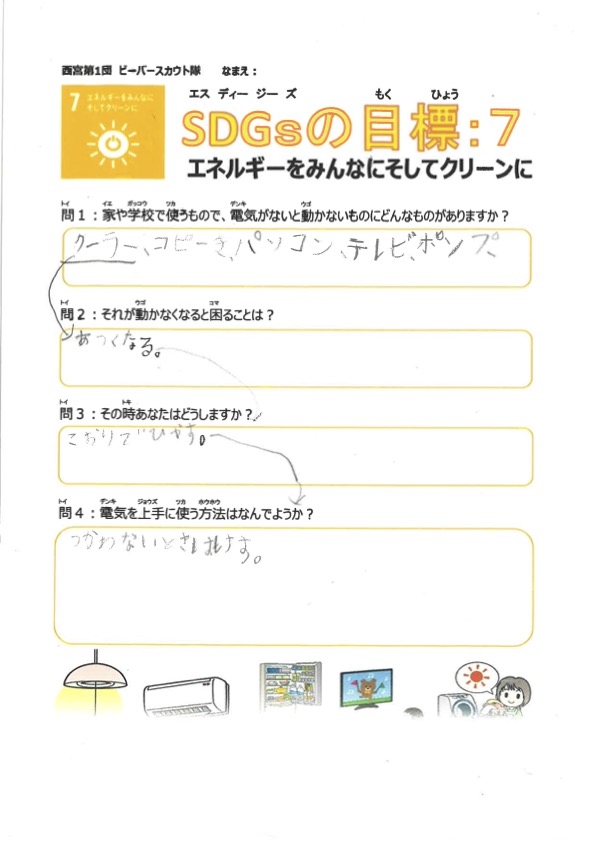 西宮第1団 ビーバースカウト隊 なまえ：
7 エネルギーをみんなに
そしてクリーンに
エス ディー ジー ズ もく ひょう
SDGsの目標：7
エネルギーをみんなにそしてクリーンに
トイ イエ ガッコウ ツカ デンキ ウゴ
問1：家や学校で使うもので、電気がないと動かないものにどんなものがありますか？
クーラー、コピーき、パソコン、テレビ、ポンプ、
トイ ウゴ コマ
問2：それが動かなくなると困ることは？
あつくなる。
トイ トキ
問3：その時あなたはどうしますか？
こおりでひやす。
トイ デンキ ジョウズ ツカ ホウホウ
問4：電気を上手に使う方法はなんでようか？
つかわないときけす。